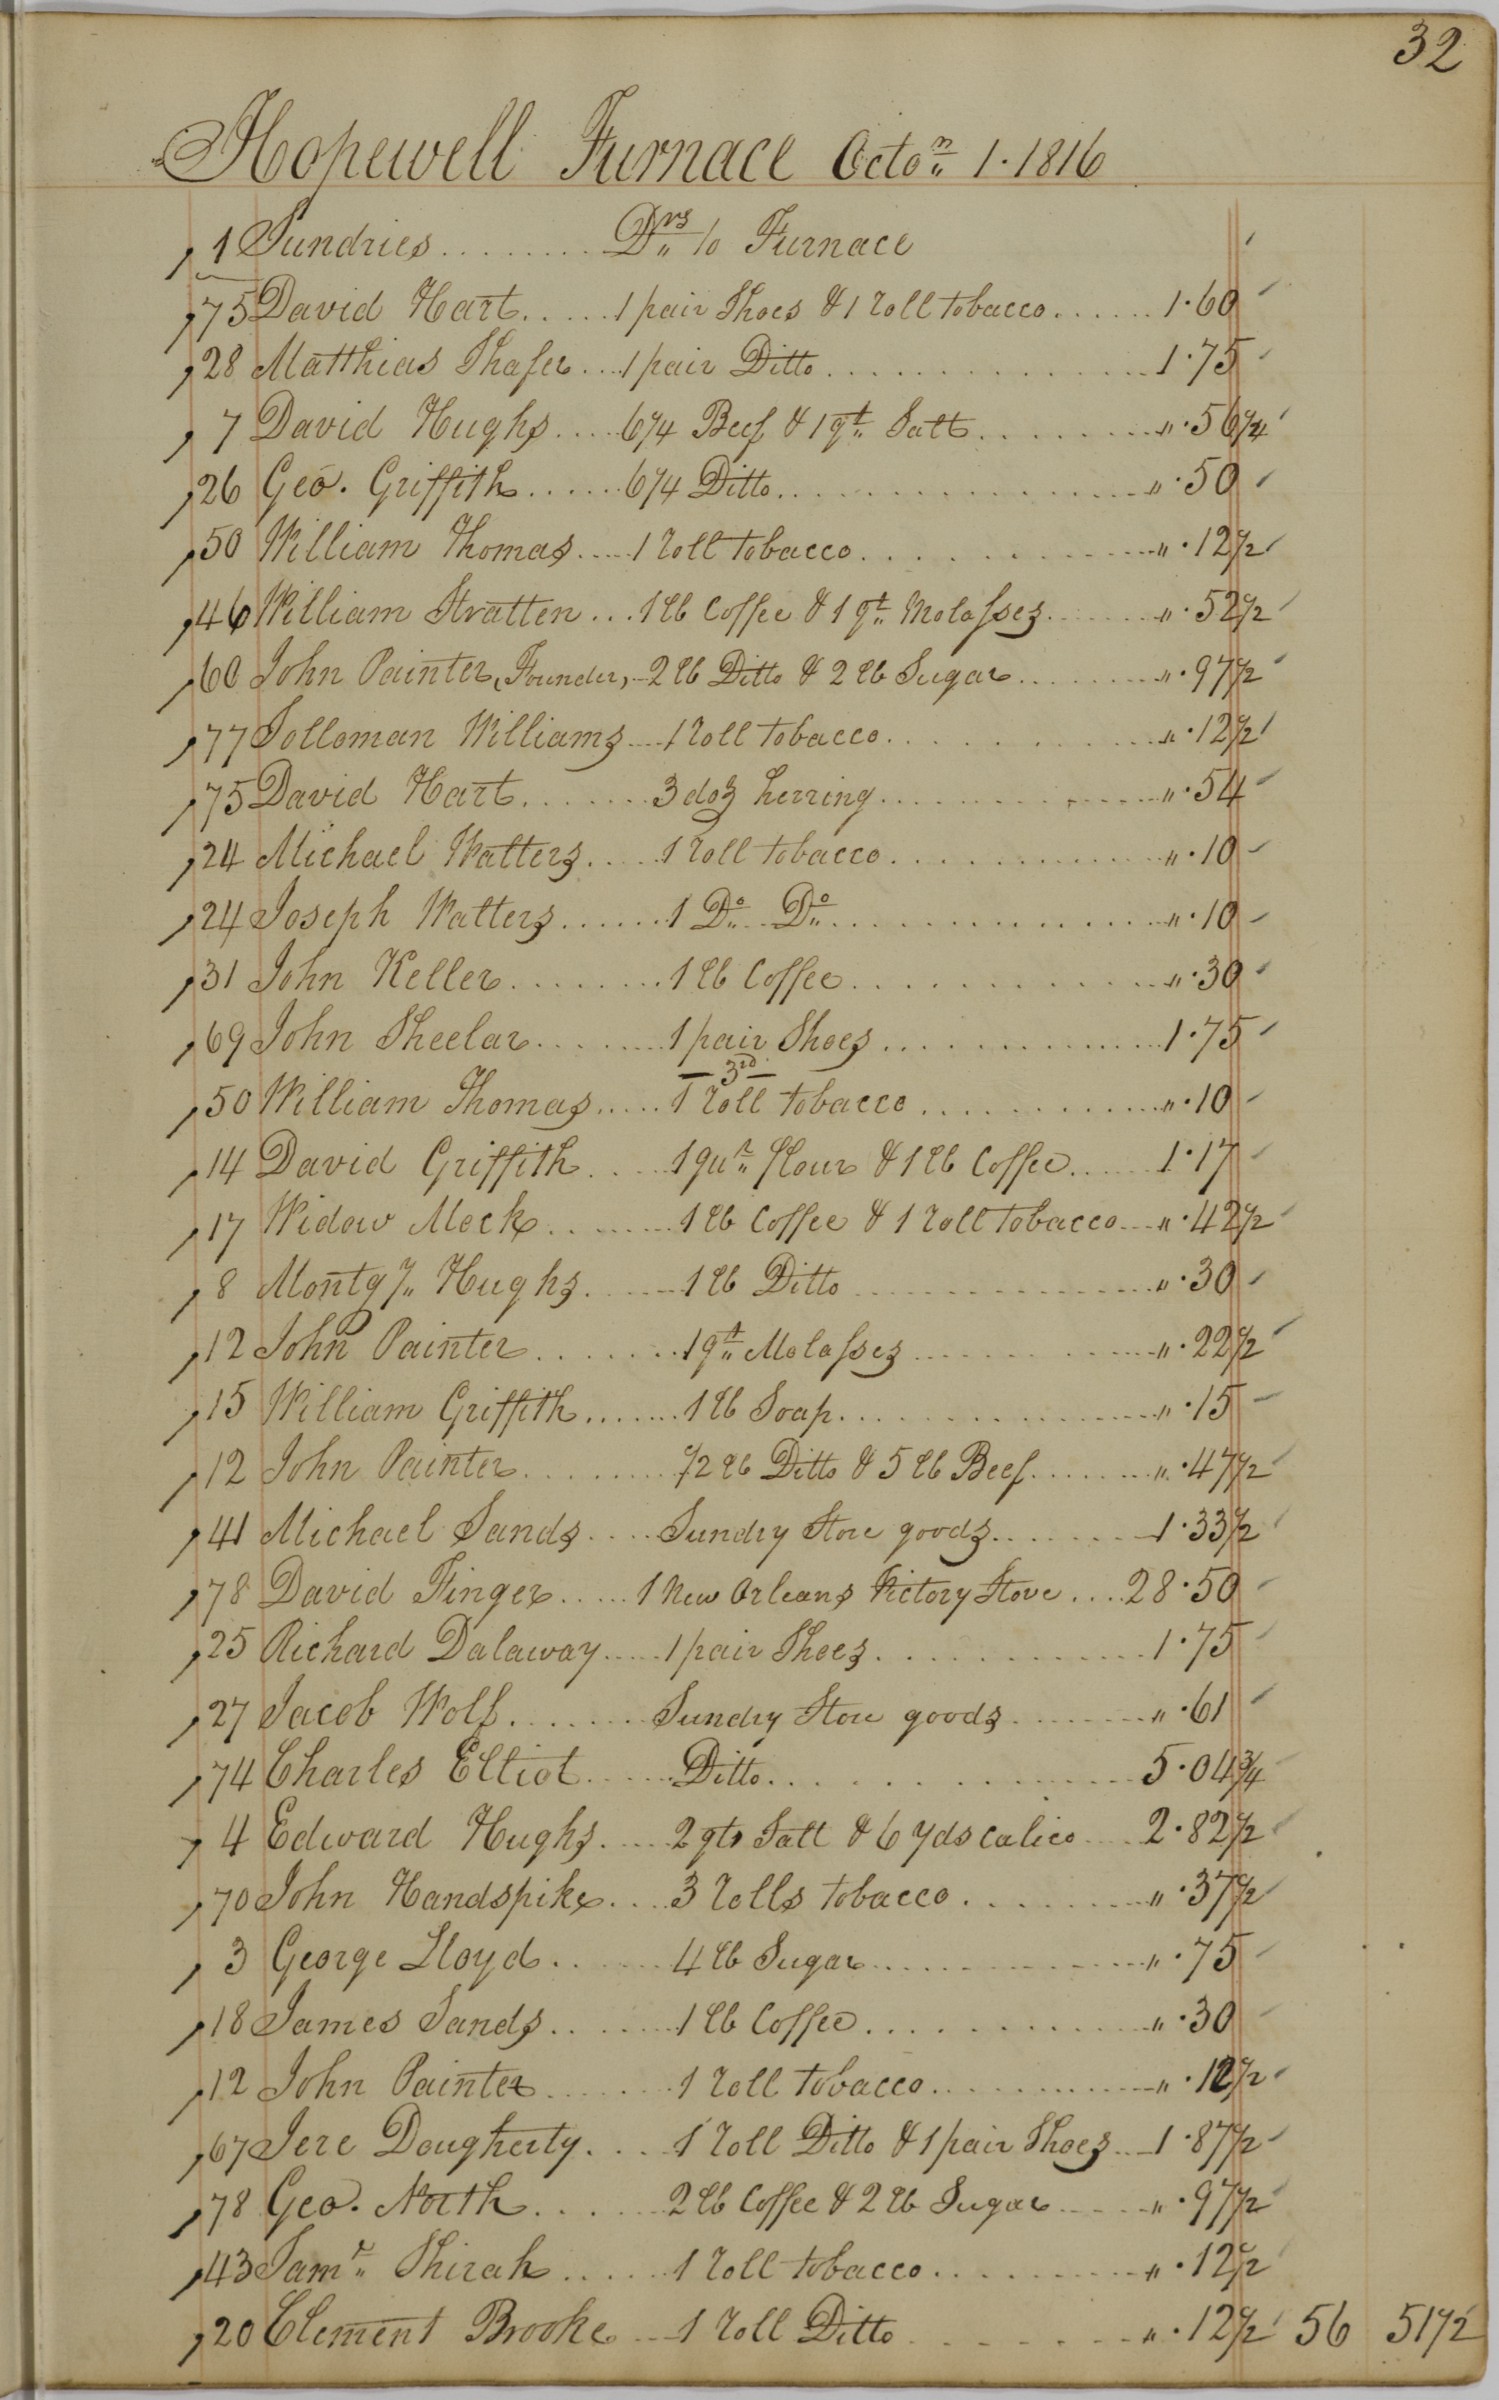 32
Hopewell Furnace Octor 1. 1816
1 Sundries ........ Drs to Furnace
75 David Hart ..... 1 pair Shoes & 1 roll tobacco ...... 1.60
28 Matthias Shafer ... 1 pair Ditto ...... 1.75
7 David Hughs .... 6 1/4 Beef & 1 qt Salt ...... ".56 1/4
26 Geo. Griffith ...... 6 1/4 Ditto ...... ".50
50 William Thomas .... 1 roll tobacco ...... ".12 1/2
46 William Stratten ... 1 lb Coffee & 1 qt Molasses ...... ".52 1/2
60 John Painter, Founder, 2 lb Ditto & 2 lb Sugar ...... ".97 1/2
77 Solloman Williams .... 1 roll tobacco ...... ".12 1/2
75 David Hart ....... 3 doz herring ...... ".54
24 Michael Watters .... 1 roll tobacco ...... ".10
24 Joseph Watters ...... 1 Do Do ...... ".10
31 John Keller ........ 1 lb Coffee ...... ".30
69 John Sheelar ....... 1 pair Shoes ...... 1.75
— 3rd —
50 William Thomas ..... 1 roll tobacco ...... ".10
14 David Griffith .... 1 qur flour & 1 lb Coffee ...... 1.17
17 Widow Mock ....... 1 lb Coffee & 1 roll tobacco .... ".42 1/2
8 Montgy Hughs ..... 1 lb Ditto ...... ".30
12 John Painter ....... 1 qt Molasses ...... ".22 1/2
15 William Griffith ....... 1 lb Soap ...... ".15
12 John Painter ........ 1/2 lb Ditto & 5 lb Beef ...... ".47 1/2
41 Michael Sands .... Sundry Store goods ...... 1.33 1/2
78 David Finger ..... 1 New Orleans Victory Stove .... 28.50
25 Richard Dalaway ..... 1 pair Shoes ...... 1.75
27 Jacob Wolf ....... Sundry Store goods ...... ".61
74 Charles Elliot ..... Ditto ...... 5.04 3/4
4 Edward Hughs .... 2 qts Salt & 6 yds calico .... 2.82 1/2
70 John Handspike .... 3 rolls tobacco ...... ".37 1/2
3 George Lloyd ...... 4 lb Sugar ...... ".75
18 James Sands ....... 1 lb Coffee ...... ".30
12 John Painter ....... 1 roll tobacco ...... ".12 1/2
67 Jere Dougherty .... 1 roll Ditto & 1 pair Shoes ... 1.87 1/2
78 Geo. North ...... 2 lb Coffee & 2 lb Sugar ..... ".97 1/2
43 Saml Shirah ...... 1 roll tobacco ...... ".12 1/2
20 Clement Brooke ... 1 roll Ditto ...... ".12 1/2 56 51 1/2